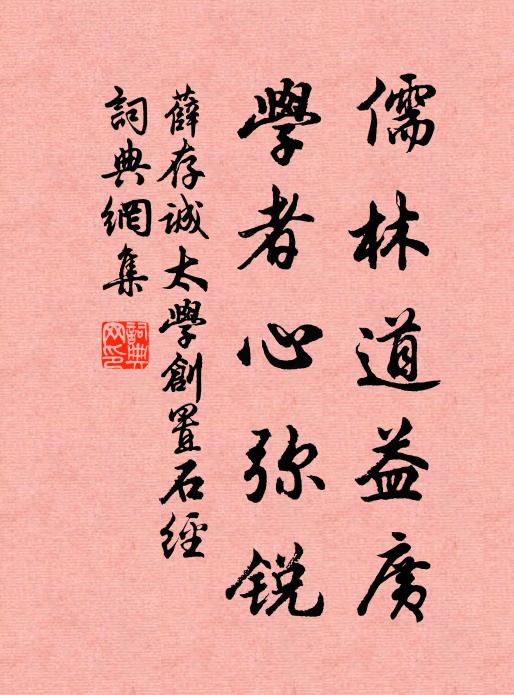 儒林道益廣
學者心弥銳
薛存誠太學創置石經
詞典網集
詞典網印